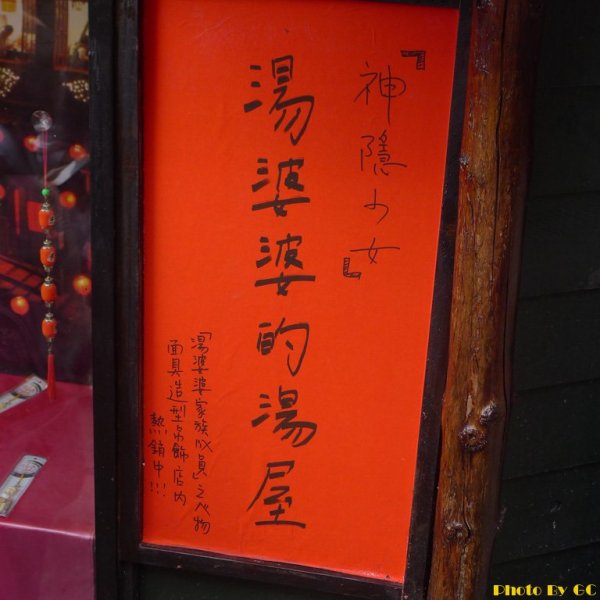 『神隱少女』
湯婆婆的湯屋
「湯婆婆家族成員」之人物
面具造型吊飾店內
熱銷中!!!
Photo By GC